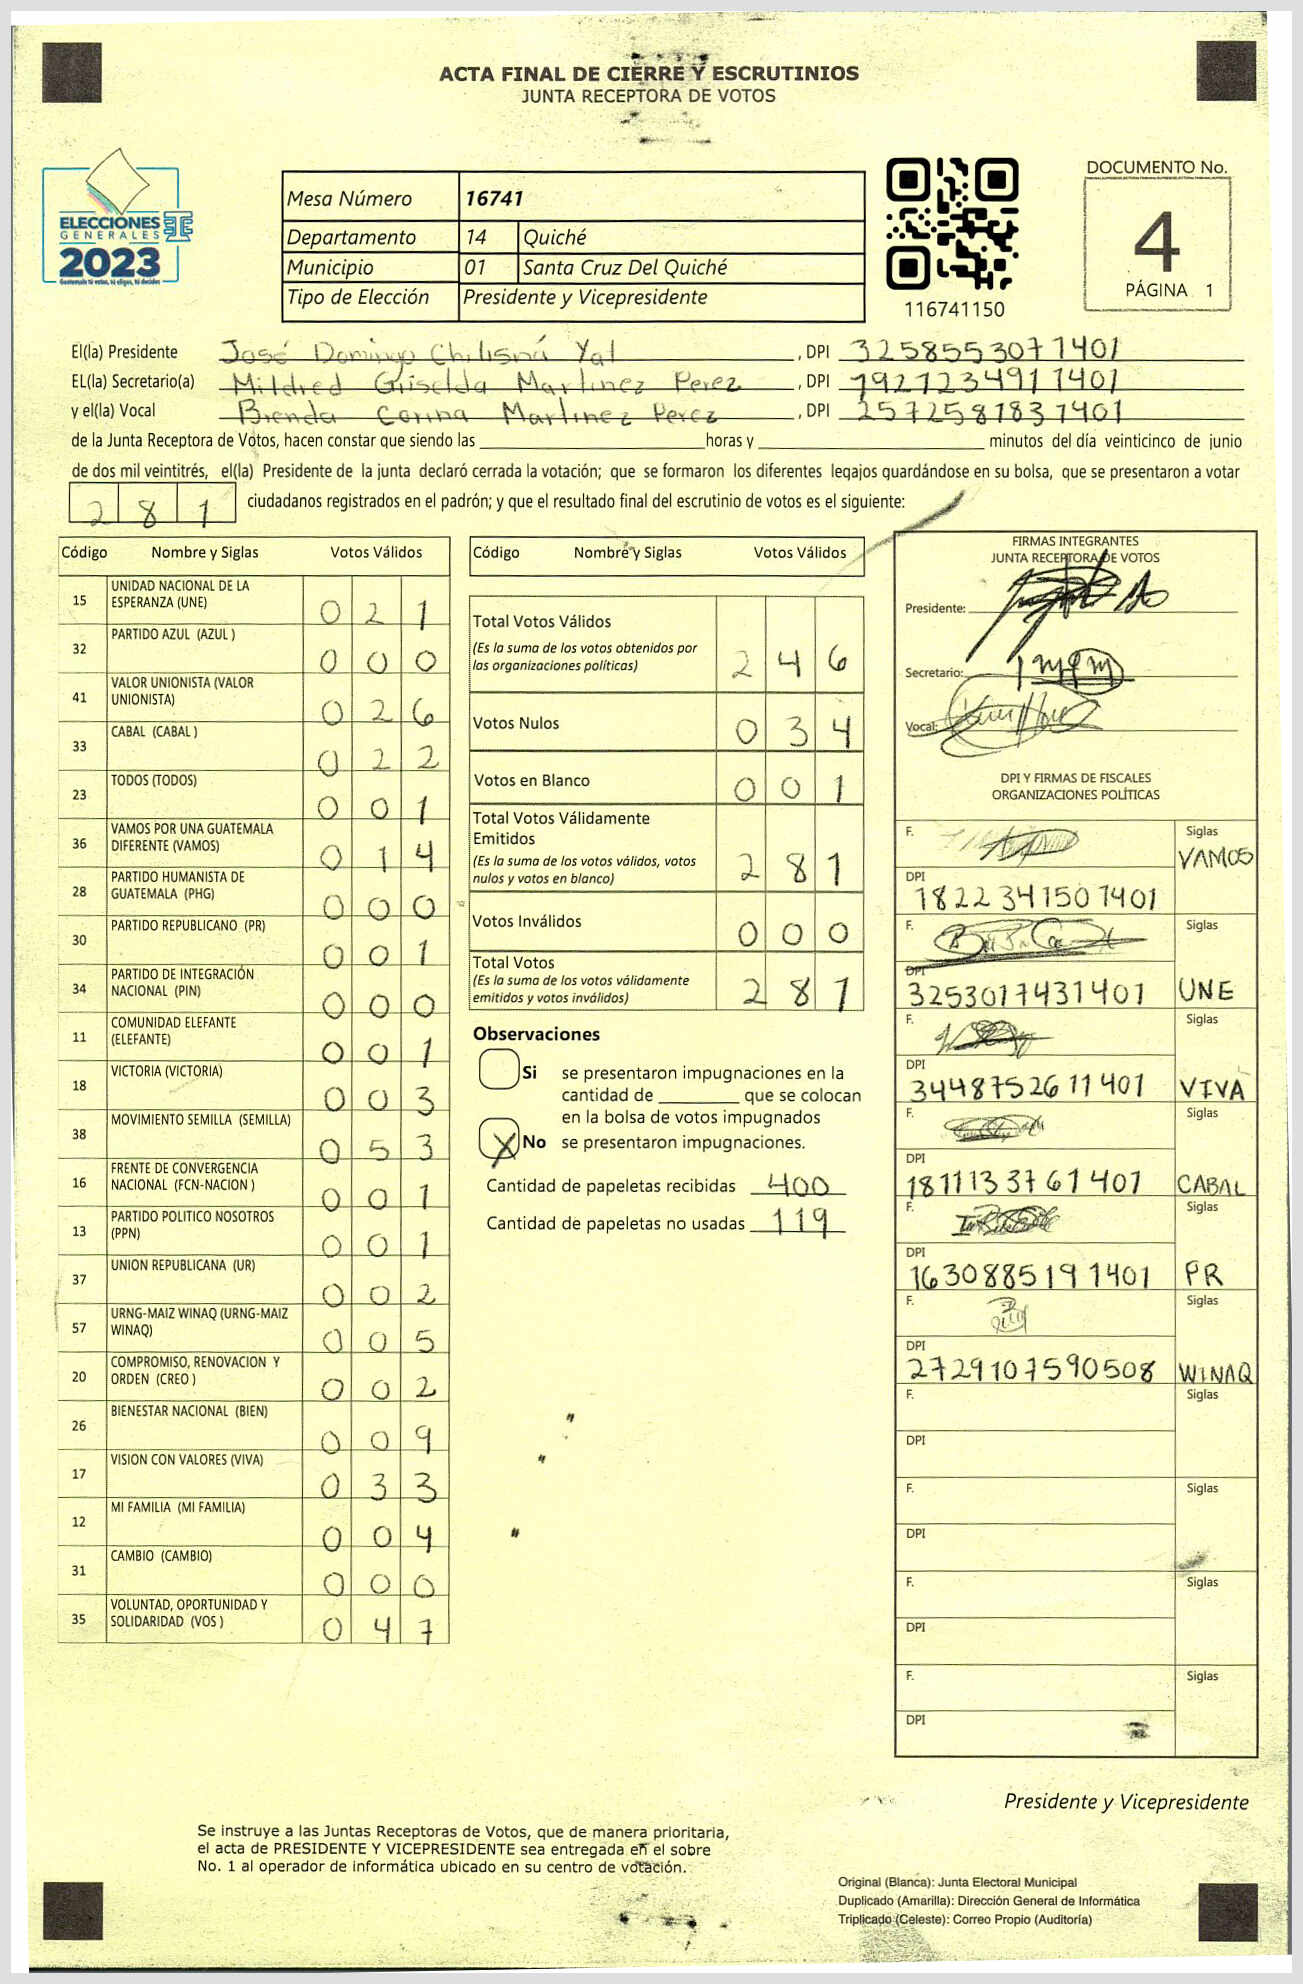 ACTA FINAL DE CIERRE Y ESCRUTINIOS
JUNTA RECEPTORA DE VOTOS
ELECCIONES
GENERALES
2023
Mesa Número 16741
Departamento 14 Quiché
Municipio 01 Santa Cruz Del Quiché
Tipo de Elección Presidente y Vicepresidente
116741150
DOCUMENTO No.
4
PÁGINA 1
El(la) Presidente José Domingo Yat, DPI 3258553071401
EL(la) Secretario(a) Mildred Griselda Martinez Perez, DPI 1921234911401
y el(la) Vocal Brenda Corina Martinez Perez, DPI 2572581831401
de la Junta Receptora de Votos, hacen constar que siendo las horas y minutos del día veinticinco de junio
de dos mil veintitrés, el(la) Presidente de la junta declaró cerrada la votación; que se formaron los diferentes legajos guardándose en su bolsa, que se presentaron a votar
281 ciudadanos registrados en el padrón; y que el resultado final del escrutinio de votos es el siguiente:
Código Nombre y Siglas Votos Válidos
15 UNIDAD NACIONAL DE LA ESPERANZA (UNE) 021
32 PARTIDO AZUL (AZUL ) 000
41 VALOR UNIONISTA (VALOR UNIONISTA) 026
33 CABAL (CABAL ) 022
23 TODOS (TODOS) 001
36 VAMOS POR UNA GUATEMALA DIFERENTE (VAMOS) 014
28 PARTIDO HUMANISTA DE GUATEMALA (PHG) 000
30 PARTIDO REPUBLICANO (PR) 001
34 PARTIDO DE INTEGRACIÓN NACIONAL (PIN) 000
11 COMUNIDAD ELEFANTE (ELEFANTE) 001
18 VICTORIA (VICTORIA) 003
38 MOVIMIENTO SEMILLA (SEMILLA) 053
16 FRENTE DE CONVERGENCIA NACIONAL (FCN-NACION ) 001
13 PARTIDO POLITICO NOSOTROS (PPN) 001
37 UNION REPUBLICANA (UR) 002
57 URNG-MAIZ WINAQ (URNG-MAIZ WINAQ) 005
20 COMPROMISO, RENOVACION Y ORDEN (CREO ) 002
26 BIENESTAR NACIONAL (BIEN) 009
17 VISION CON VALORES (VIVA) 033
12 MI FAMILIA (MI FAMILIA) 004
31 CAMBIO (CAMBIO) 000
35 VOLUNTAD, OPORTUNIDAD Y SOLIDARIDAD (VOS ) 047
Código Nombre y Siglas Votos Válidos
Total Votos Válidos 246
(Es la suma de los votos obtenidos por
las organizaciones políticas)
Votos Nulos 034
Votos en Blanco 001
Total Votos Válidamente
Emitidos 281
(Es la suma de los votos válidos, votos
nulos y votos en blanco)
Votos Inválidos 000
Total Votos 281
(Es la suma de los votos válidamente
emitidos y votos inválidos)
Observaciones
Si se presentaron impugnaciones en la
cantidad de que se colocan
en la bolsa de votos impugnados
X No se presentaron impugnaciones.
Cantidad de papeletas recibidas 400
Cantidad de papeletas no usadas 119
FIRMAS INTEGRANTES
JUNTA RECEPTORA DE VOTOS
Presidente:
Secretario:
Vocal:
DPI Y FIRMAS DE FISCALES
ORGANIZACIONES POLÍTICAS
F. Siglas VAMOS
DPI 1822341501401
F. Siglas UNE
DPI 3253017431401
F. Siglas VIVA
DPI 3448752611401
F. Siglas CABAL
DPI 1811133761401
F. Siglas PR
DPI 1630885191401
F. Siglas WINAQ
DPI 2729107590508
F. Siglas
DPI
F. Siglas
DPI
F. Siglas
DPI
F. Siglas
DPI
Presidente y Vicepresidente
Se instruye a las Juntas Receptoras de Votos, que de manera prioritaria,
el acta de PRESIDENTE Y VICEPRESIDENTE sea entregada en el sobre
No. 1 al operador de informática ubicado en su centro de votación.
Original (Blanca): Junta Electoral Municipal
Duplicado (Amarilla): Dirección General de Informática
Triplicado (Celeste): Correo Propio (Auditoría)